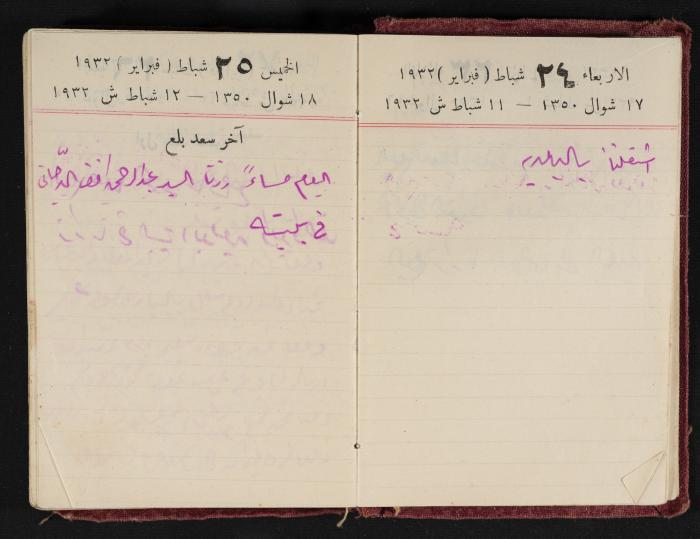 الاربعاء ٢٤ شباط (فبراير) ١٩٣٢
١٧ شوال ١٣٥٠ — ١١ شباط ش ١٩٣٢
اشتغلنا بالبلديه
الخميس ٢٥ شباط (فبراير) ١٩٣٢
١٨ شوال ١٣٥٠ — ١٢ شباط ش ١٩٣٢
آخر سعد بلع
اليوم مساءً زرنا السيد عبد الرحمن افندي الدجاني
في بيته